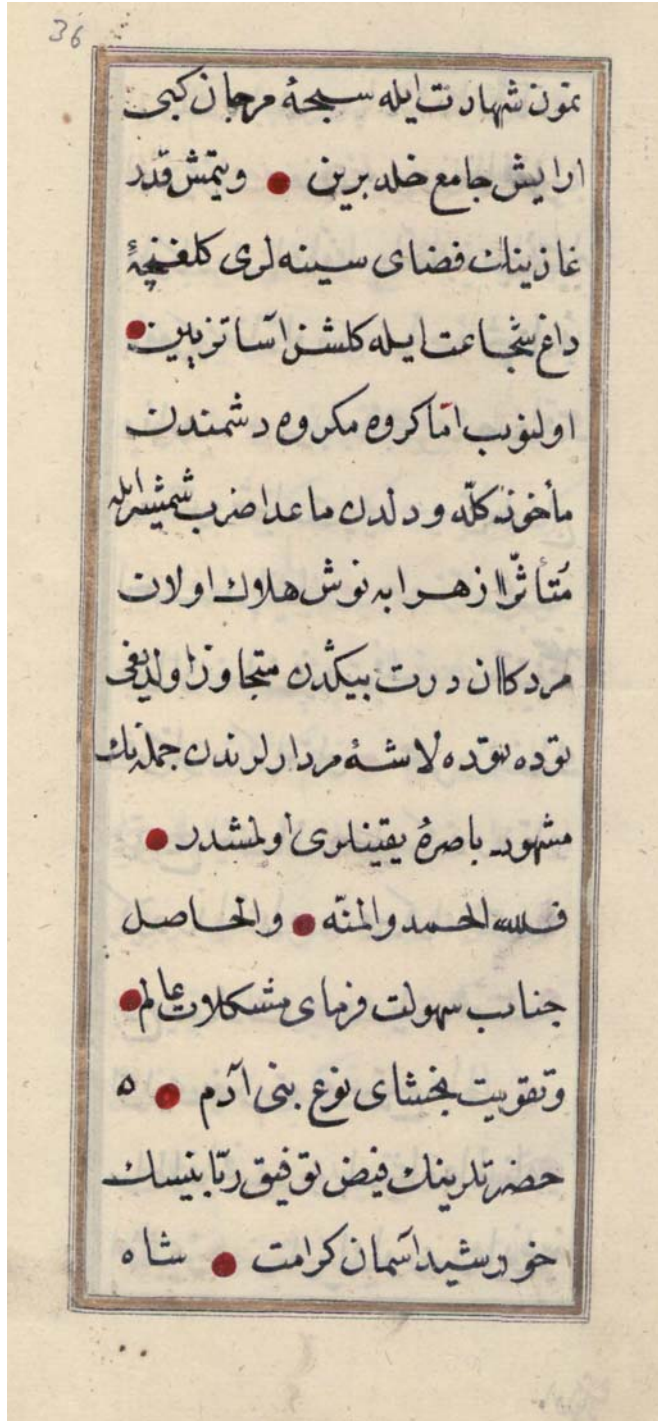 36
نمون شهادت ایله سبحهٔ مرجان کبی
ارایش جامع خلد برین ● ویتمش قدر
غازینك فضای سینه لری کلغنچهٔ
داغ شجاعت ایله کلشن آسا تزیین ●
اولنوب امّا کروه مکروه دشمندن
مأخوذ کلّه ودلدن ماعدا ضرب شمشیر ایله
متأثّرا زهرابه نوش هلاك اولان
مردکان درت بیکدن متجاوز اولدیغی
توده توده لاشهٔ مردارلرندن جمله نك
مشهود باصرهٔ یقینلری اولمشدر ●
فلله الحمد والمنّه ● والحاصل
جناب سهولت فرمای مشکلات عالم ●
وتقویت بخشای نوع بنی آدم ● ه
حضرتلرینك فیض توفیق ربّانیسیله
خورشید آسمان کرامت ● شاه